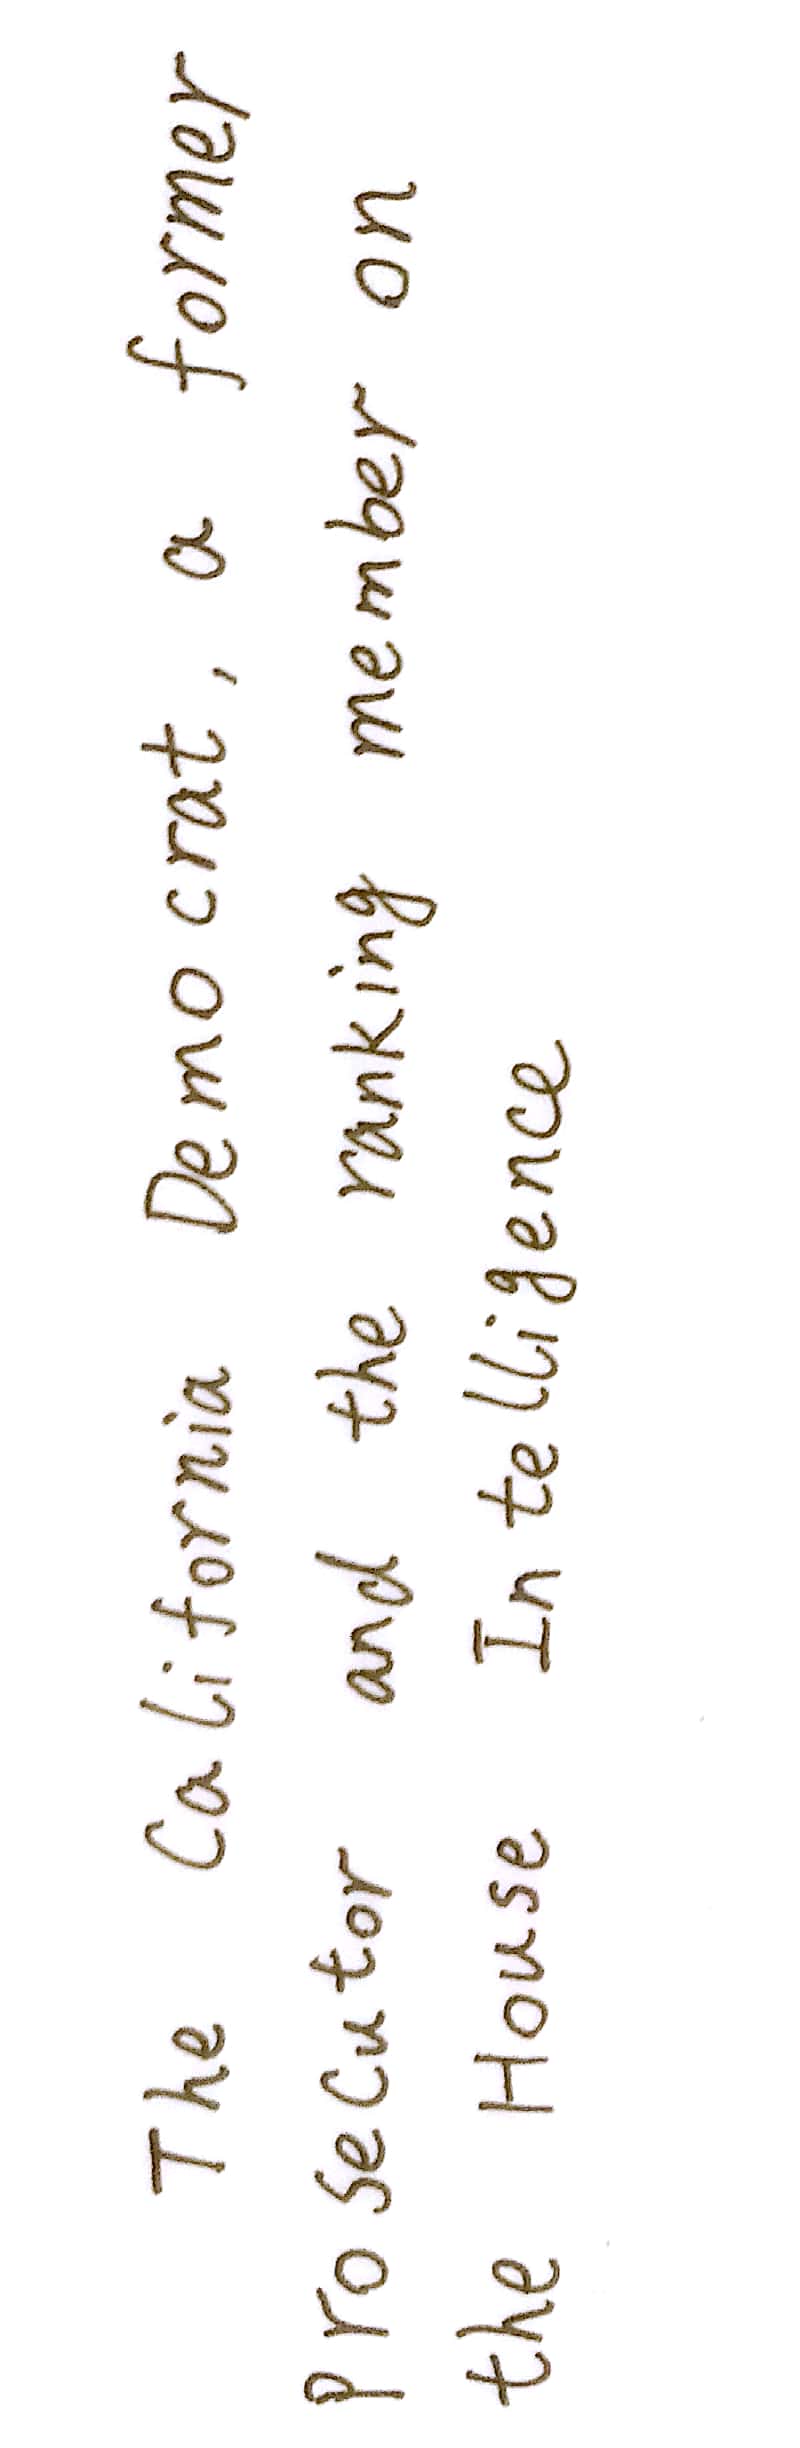 The California Democrat, a former
prosecutor and the ranking member on
the House Intelligence